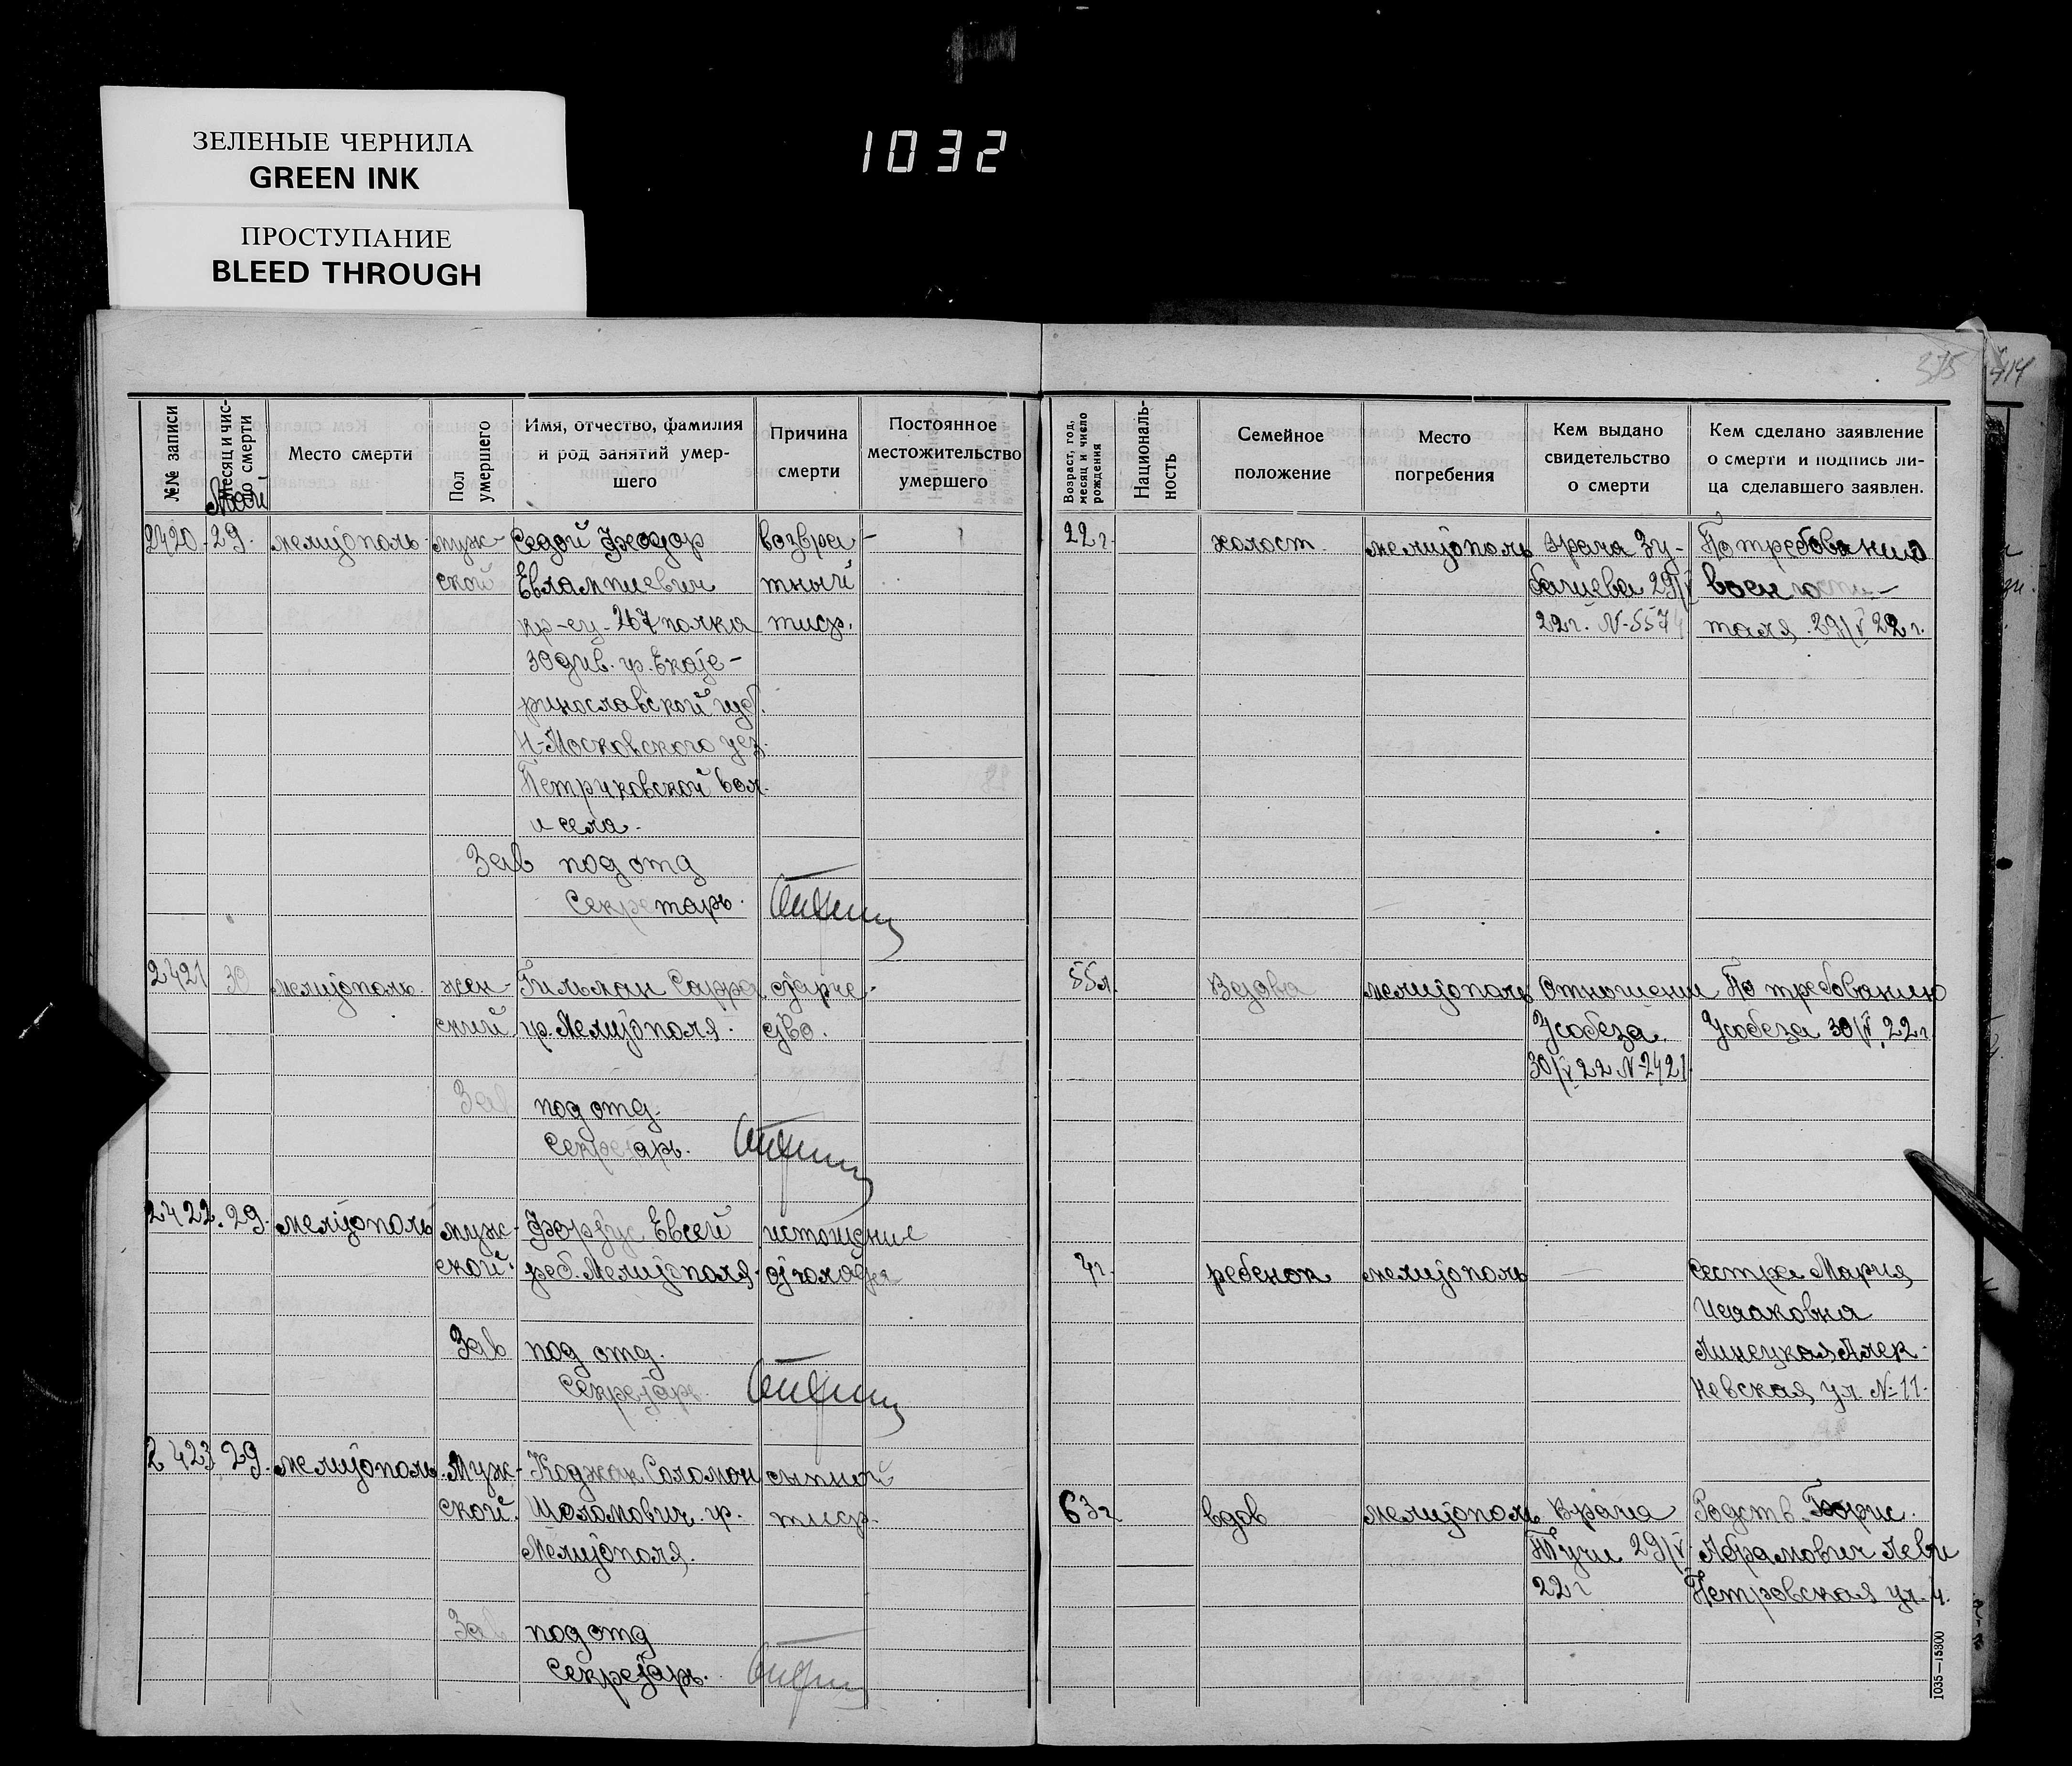 1032
ЗЕЛЕНЫЕ ЧЕРНИЛА
GREEN INK
ПРОСТУПАНИЕ
BLEED THROUGH
375
414
№№ записи
Месяц и чис-
ло смерти
Место смерти
Пол
умершего
Имя, отчество, фамилия
и род занятий умер-
шего
Причина
смерти
Постоянное
местожительство
умершего
Возраст, год,
месяц и число
рождения
Националь-
ность
Семейное
положение
Место
погребения
Кем выдано
свидетельство
о смерти
Кем сделано заявление
о смерти и подпись ли-
ца сделавшего заявлен.
Май
2420. 29. мелитополь муж- Седой Феодор возвра- 22 г. холост. мелитополь врача Зу- По требованию
ской Евлампиевич тный 29/V воен госпи-
кр-ец. 267 полка тиф. 22 г. N-5574 таля 29/V 22 г.
30 див. гр. Екате-
ринославской губ.
Н-Московского уез.
Петриковской вол.
и села.
Зав под отд
Секретарь.
2421 30 мелитополь. жен- Гильман Сарра старче- 55 л. вдова мелитополь Отношении По требованию
ский гр. Мелитополя. ство. Усобеза. Усобеза 30/V 22 г.
30/V 22 N-2421
Зав под отд.
Секретарь.
2422. 29. мелитополь муж- Евсей истощение
ской. реб. Мелитополя. от голода 4 г. ребенок мелитополь сестра Мария
Исааковна
Линецкая Алек-
Невская ул. № 11.
Зав под отд.
Секретарь.
2423 29. мелитополь. Муж- Коджак Соломон сыпной
ской. Шоломович. гр. тиф. 63 г. вдов мелитополь врача Родств. Борис.
Мелитополя. 29/V Абрамович Леви
22 г Петровская ул. 4.
Зав под отд
Секретарь.
1035—15300